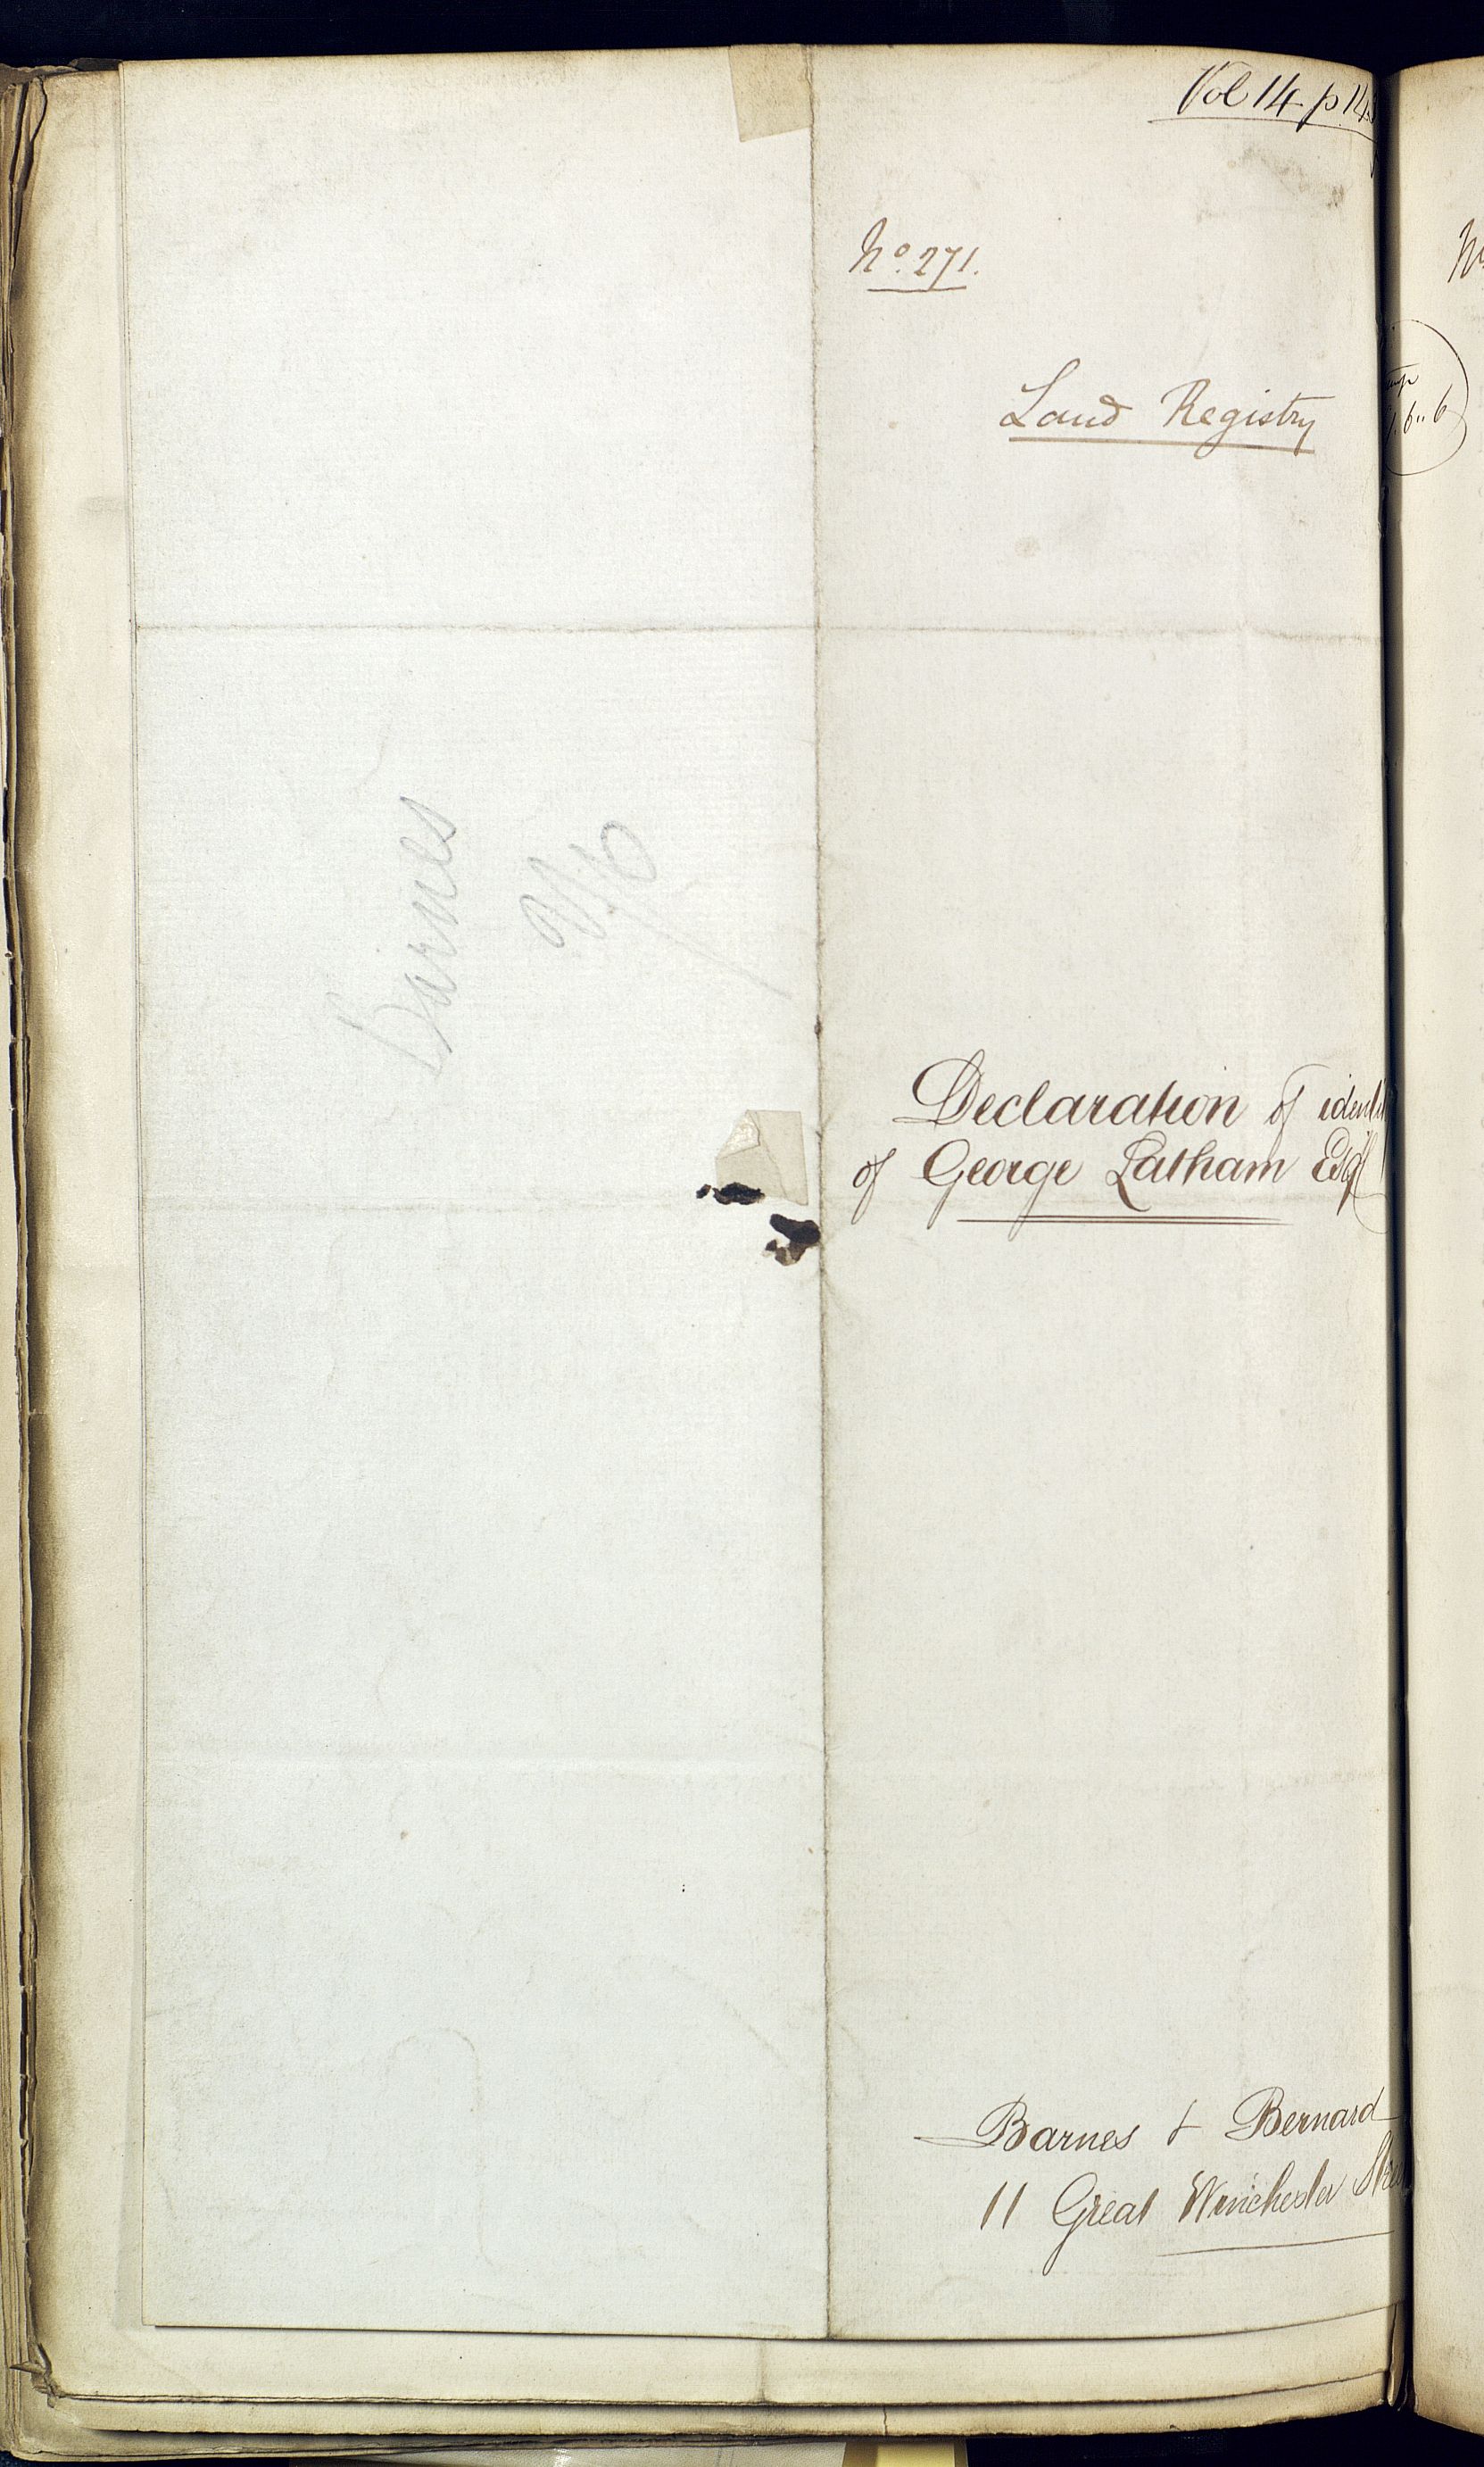 Vol 14 p 14
No. 271.
Land Registry
Barnes
Declaration of identi
of George Latham Esqr
Barnes & Bernard
11 Great Winchester Stree